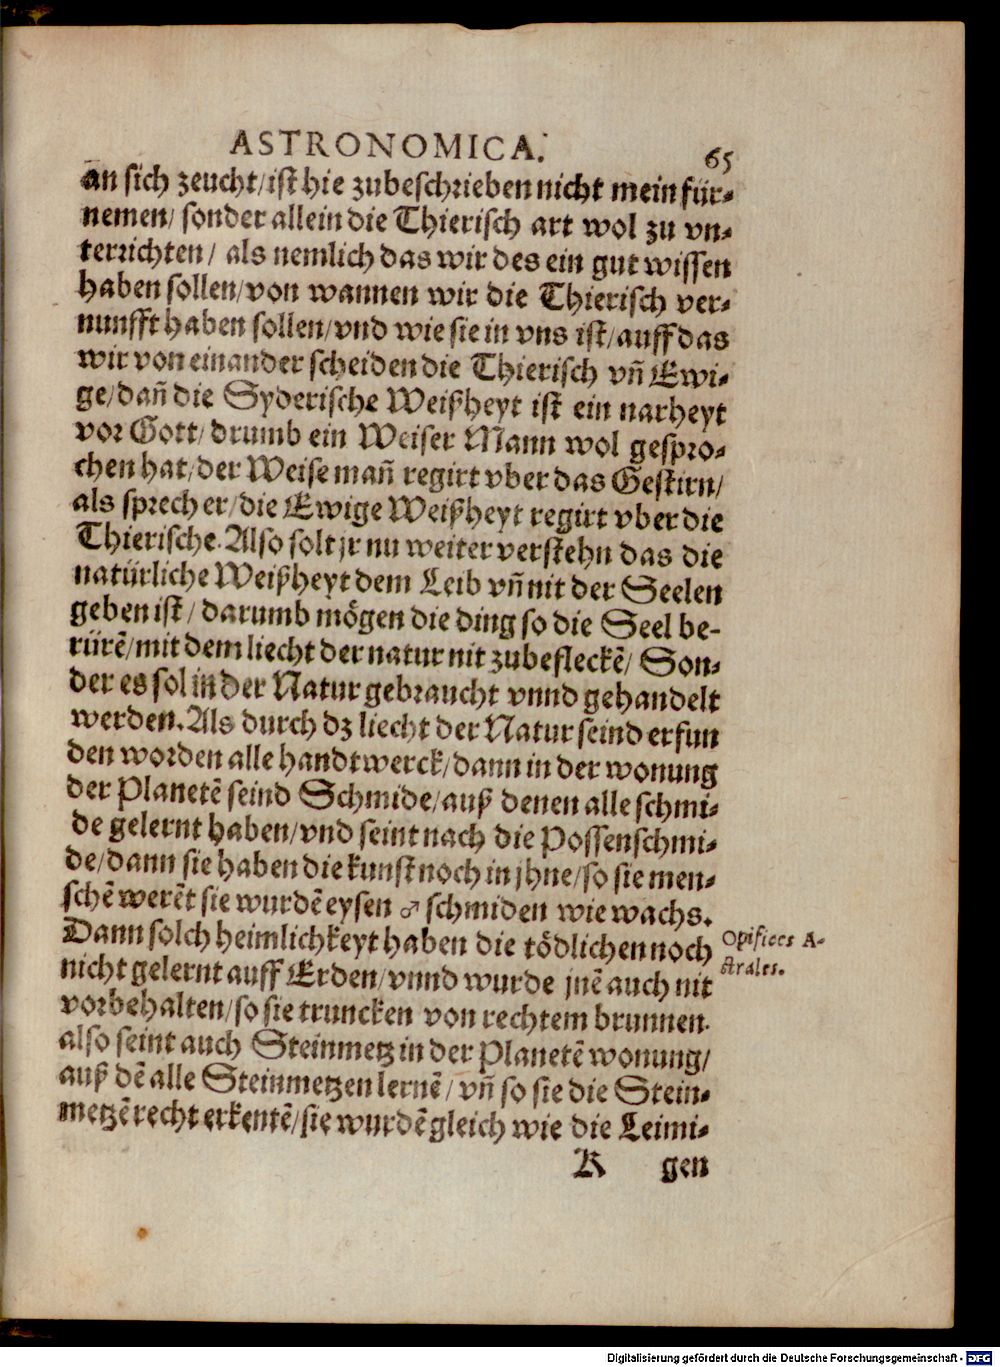 ASTRONOMICA.
65
an sich zeucht/ist hie zubeschrieben nicht mein für-
nemen/ sonder allein die Thierisch art wol zu vn-
terrichten/ als nemlich das wir des ein gut wissen
haben sollen/von wannen wir die Thierisch ver-
nunfft haben sollen/vnd wie sie in vns ist/auff das
wir von einander scheiden die Thierisch vñ Ewi-
ge/dañ die Syderische Weißheyt ist ein narheyt
vor Gott/drumb ein Weiser Mann wol gespro-
chen hat/der Weise mañ regirt vber das Gestirn/
als sprech er/die Ewige Weißheyt regirt vber die
Thierische.Also solt jr nu weiter verstehn das die
natürliche Weißheyt dem Leib vñ nit der Seelen
geben ist/ darumb mögen die ding so die Seel be-
rürẽ/mit dem liecht der natur nit zubefleckẽ/ Son-
der es sol in der Natur gebraucht vnnd gehandelt
werden.Als durch dz liecht der Natur seind erfun
den worden alle handtwerck/dann in der wonung
der Planetẽ seind Schmide/auß denen alle schmi-
de gelernt haben/vnd seint nach die Possenschmi-
de/dann sie haben die kunst noch in jhne/so sie men-
schẽ werẽt sie wurdẽ eysen ♂ schmiden wie wachs.
Dann solch heimlichkeyt haben die tödlichen noch
nicht gelernt auff Erden/vnnd wurde jnẽ auch nit
vorbehalten/so sie truncken von rechtem brunnen.
also seint auch Steinmetz in der Planetẽ wonung/
auß dẽ alle Steinmetzen lernẽ/ vñ so sie die Stein-
metzẽ recht erkentẽ/sie wurdẽ gleich wie die Leimi-
K gen
Opifices A-
strales.
Digitalisierung gefördert durch die Deutsche Forschungsgemeinschaft - DFG